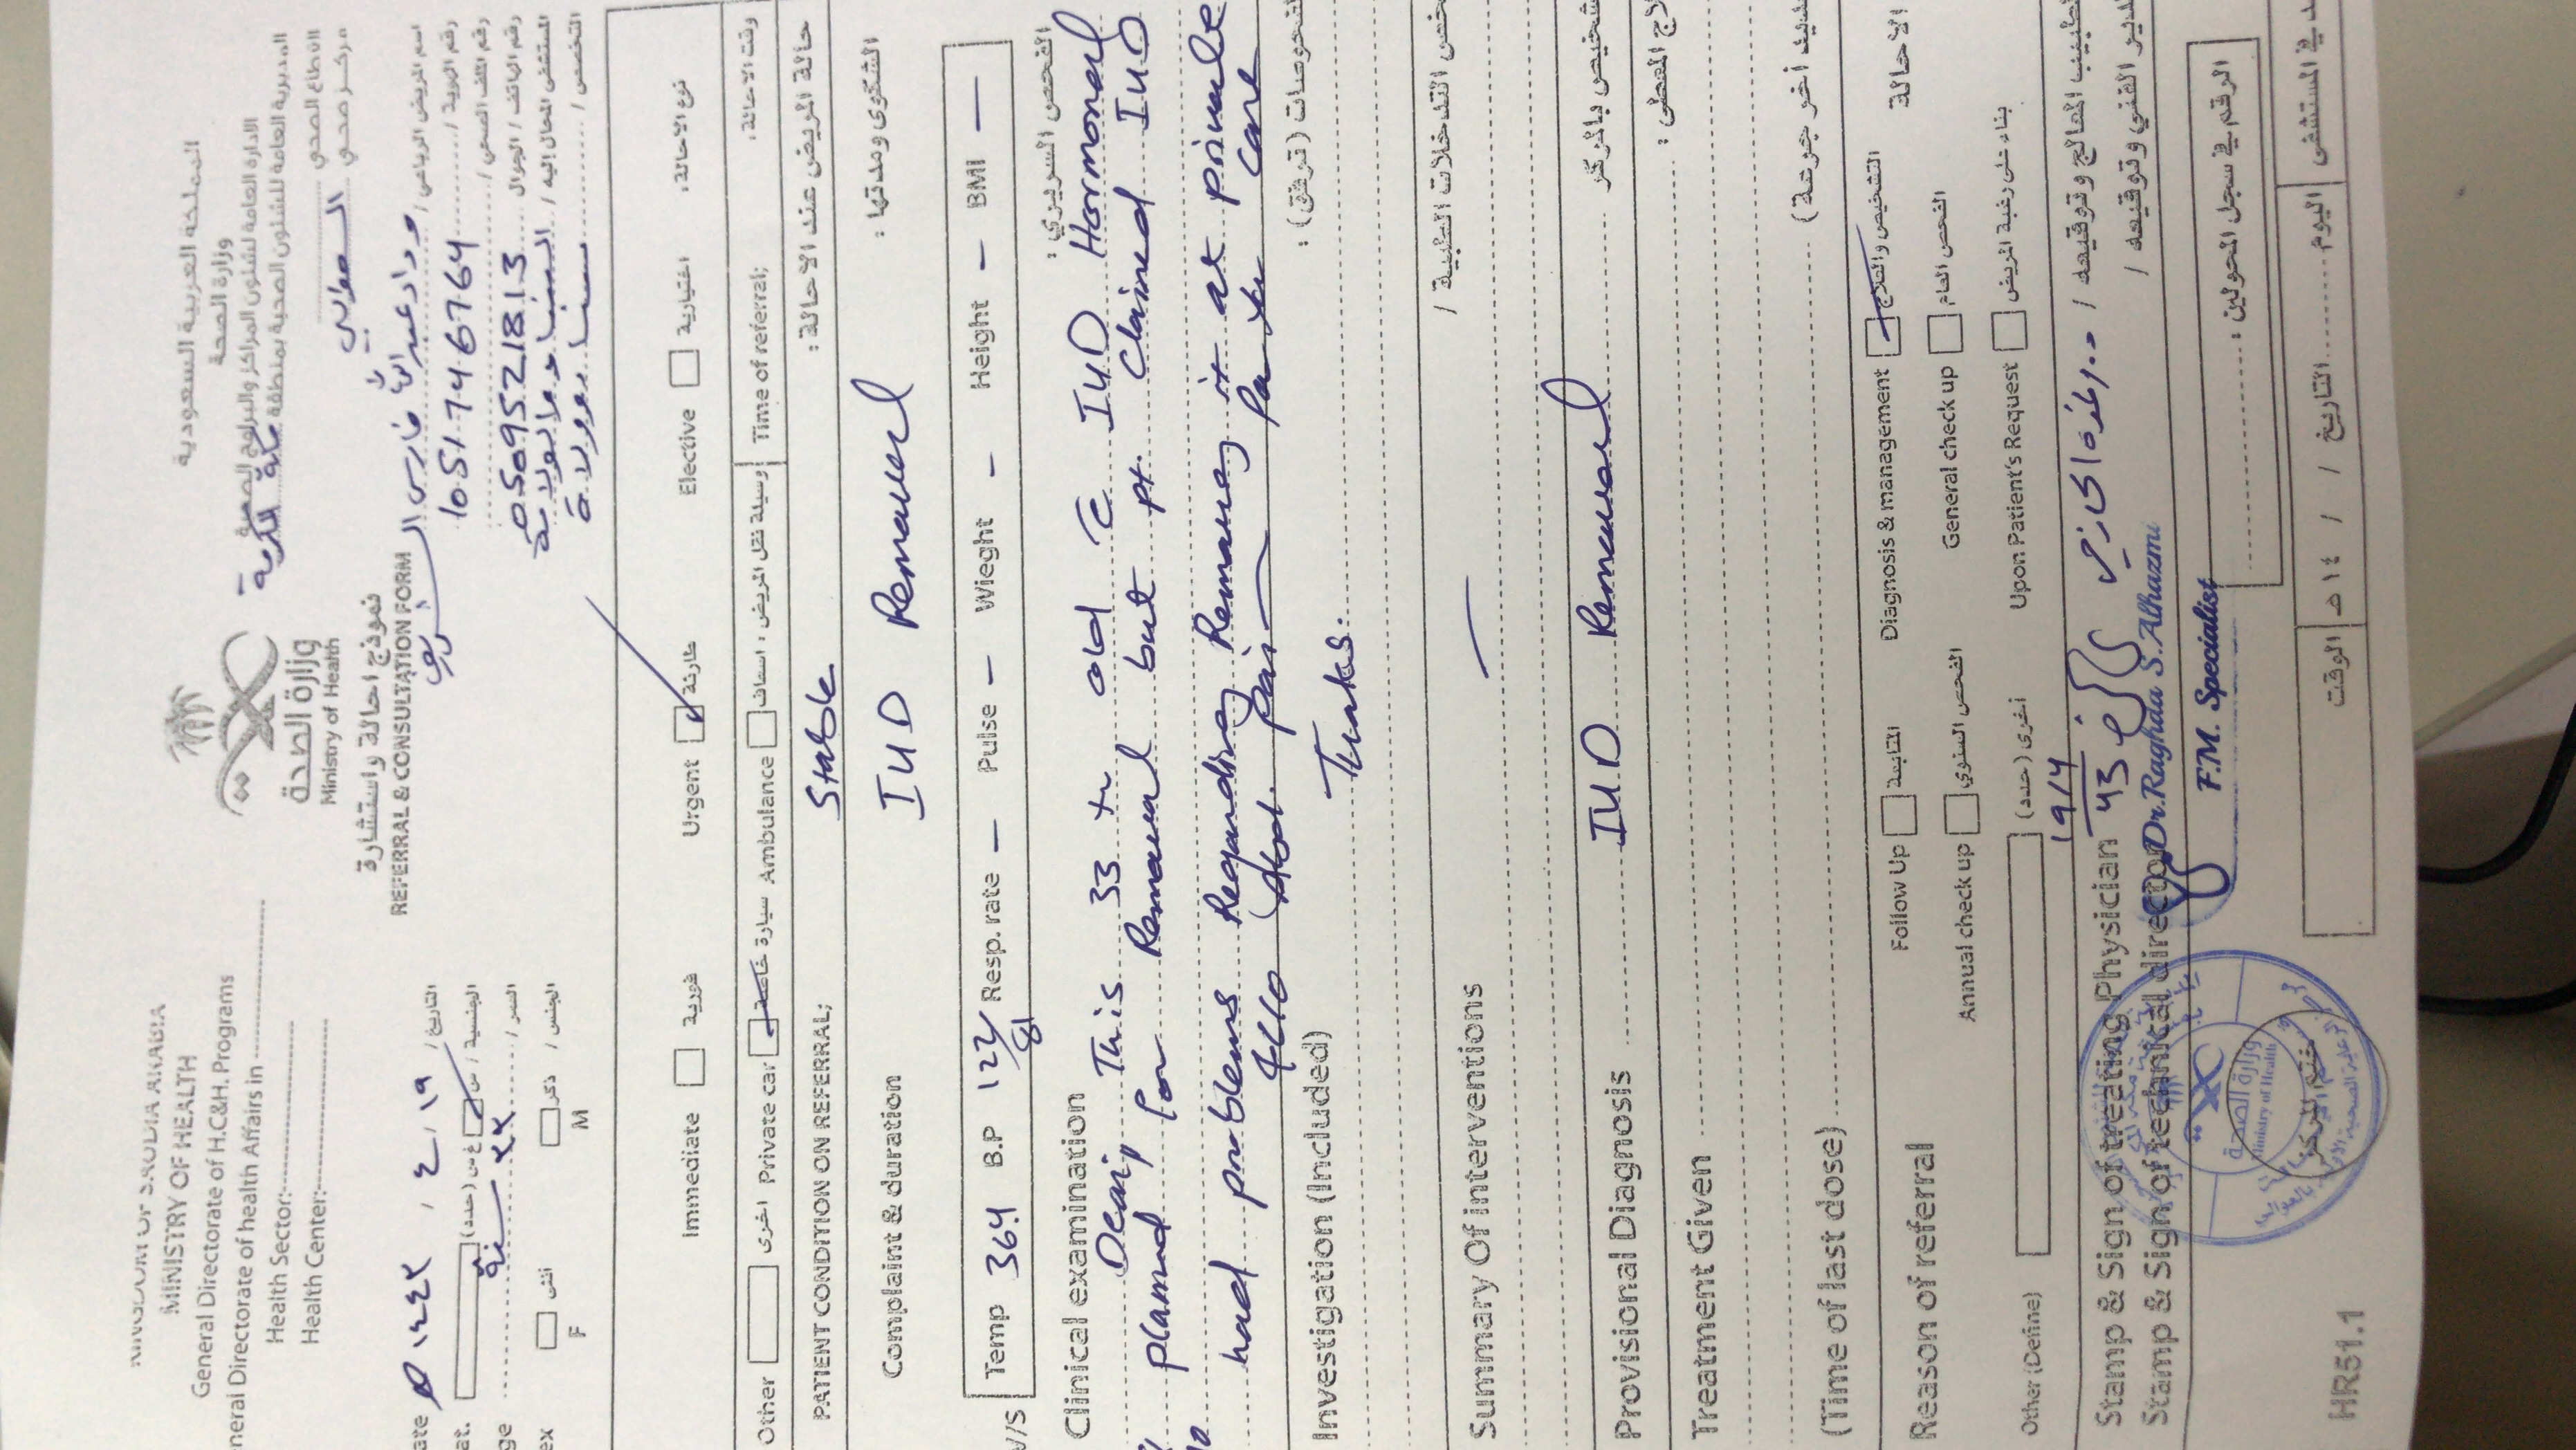 KINGDOM OF SAUDIA ARABIA
MINISTRY OF HEALTH
General Directorate of H.C&H. Programs
neral Directorate of health Affairs in
Health Sector:
Health Center:
وزارة الصحة
Ministry of Health
المملكة العربية السعودية
وزارة الصحة
الادارة العامة لشئون المراكز والبرامج الصحية
المديرية العامة للشئون الصحية بمنطقة مكة المكرمة
القطاع الصحي
مركز صحي
نموذج احالة واستشارة
REFERRAL & CONSULTATION FORM
اسم المريض الرباعي / وداد عبدالله فارس الشريف
رقم الهوية / 1051746764
رقم الملف الصحي /
رقم الهاتف / الجوال 0509521813
المستشفى المحال إليه / النساء والولادة
التخصص / نسا وولادة
ate ١٤٤٣ / ٤ / ١٩ التاريخ /
at. الجنسية / س غ س (حدد)
ge ٣٣ سنة العمر /
ex أنثى ذكر الجنس /
F M
Immediate فورية Urgent طارئة Elective اختيارية نوع الاحالة :
Other اخرى Private car سيارة خاصة Ambulance وسيلة نقل المريض : اسعاف Time of referral; وقت الاحالة :
PATIENT CONDITION ON REFERRAL; Stable حالة المريض عند الاحالة :
Complaint & duration IUD Removal الشكوى ومدتها :
V/S Temp 36.4 B.P 122/81 Resp. rate – Pulse – Wieght – Height – BMI –
Clinical examination الفحص السريري :
Dear, This 33 old IUD Hormonal
planned for Removal but pt. Claimed IUD
had problems Regarding Removing it at private
Abd. pain care
Investigation (Included) لفحوصات (ترفق) :
Thaks.
Summary Of interventions خص التدخلات الطبية /
Provisional Diagnosis IUD Removal شخيص بالمركز
Treatment Given لاج المعطى :
(Time of last dose) ديد أخر جرعة )
Reason of referral Follow Up المتابعة Diagnosis & management التشخيص والعلاج الاحالة
Annual check up الفحص السنوي General check up الفحص العام
Other (Define) أخرى (حدد) Upon Patient's Request بناء على رغبة المريض
Stamp & Sign of treating Physician 19/4 43 طبيب المعالج وتوقيعه /
Stamp & Sign of technical director دير الفني وتوقيعه /
Dr.Raghda S.Alhazmi
F.M. Specialist
وزارة الصحة
Ministry of Health
ختم المركز
الرقم في سجل المحولين :
HR51.1
د في المستشفى اليوم التاريخ / / ١٤ هـ الوقت